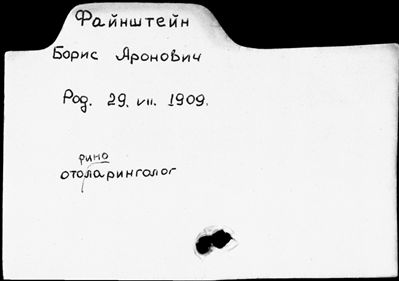 Файнштейн
Борис Аронович
Род. 29. VII. 1909.
рино
отоларинголог